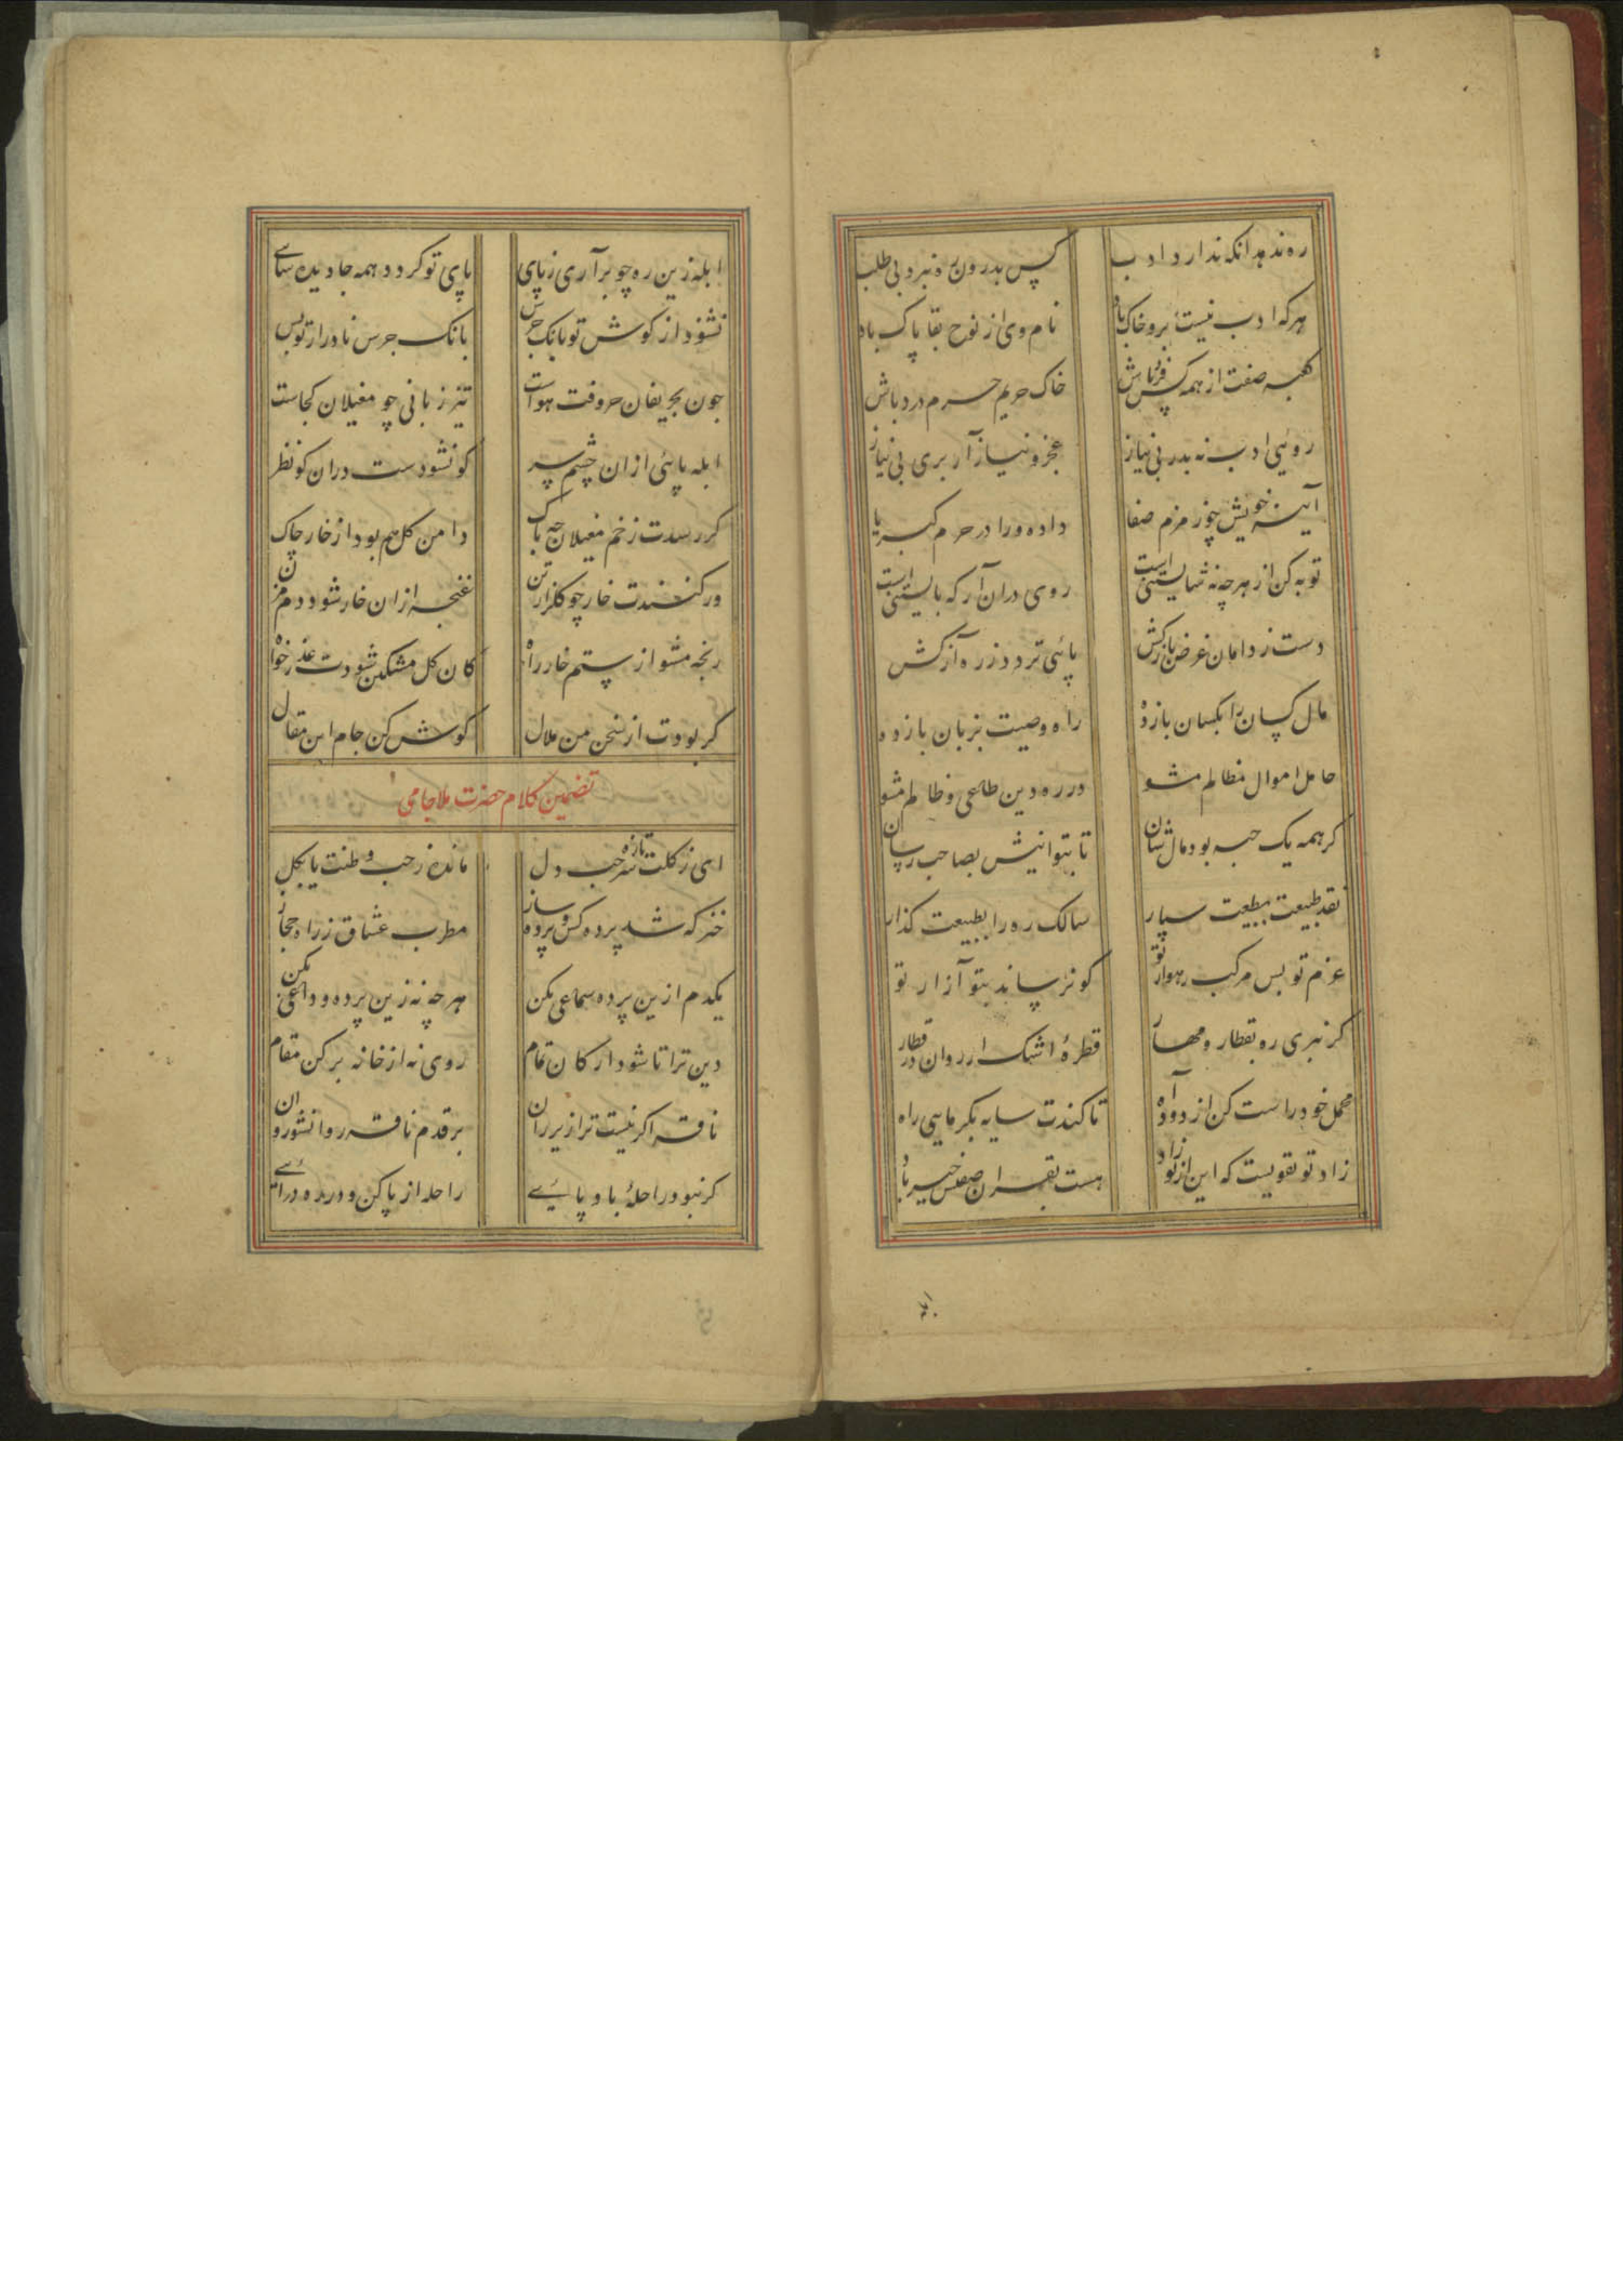 ره ندهد انکه ندارد ادب کس بدرون ره نبرد بی طلب
هرکه ادب نیست برو خاک باد نام وی از لوح بقا پاک باد
کعبه صفت از همه کس فرد باش خاک حریم حرم درد باش
روئی ادب نه بدر بی نیاز عجز و نیاز آر بری بی نیاز
آینه خویش بخور مزم صفا داده و را در حرم کبریا
توبه کن از هرچه نه شایستنی است روی دران آر که بایستنی است
دست ز دامان غرض بازکش پائی تردد ز ره آز کش
مال کسان را بکسان بازده راه وصیت بزبان بازده
حامل اموال مظالم مشو در ره دین طامحی و ظالم مشو
کر همه یک حبه بود مال شان تا بتوانیش بصاحب رسان
نقد طبیعت بطبیعت سپار سالک ره را بطبیعت کذار
عزم تو بس مرکب رهوار تو کو نرساند بتو آزار تو
کر نبری ره بقطار و مهار قطرهٔ اشک ار روان در قطار
محمل خود راست کن از دود آه تا کندت سایه بکرمایی راه
زاد تو تقویست که این از تو زاد هست بقران صفتش خیر زاد
ابله زین ره چو برآری ز پای پای تو کردد همه جا دیده سای
نشنود از کوش تو بانک جرس بانک جرس نادر از تو بس
چون بحریفان حروفت هواست تیز زبانی چو مغیلان کجاست
ابله پائی ازان چشم سر کو نشودست دران کو نظر
کر رسدت زخم مغیلان چه باک دامن کل هم بود از خار چاک
ور کنندت خار چو کلزار تن غنچه ازان خار شود دم مزن
رنجه مشو از ستم خار راه کان کل مشکین شودت عذر خواه
کر بودت از سخن من ملال کوش کن از جام این مقال
تضمین کلام حضرت ملا جامی
ای ز کلت تازه تر حب دل مانده ز حب وطنت پا بکل
خیز که شد پرده کش و پرده ساز مطرب عشاق ز راه حجاز
یکدم ازین پرده سماعی بکن هر چه نه زین پرده وداعی بکن
دین ترا تا شود ارکان تمام روی نه از خانه بر کن مقام
ناقه اکر نیست ترا زیر ران بر قدم ناقه روانشو روان
کر نبود راحلهٔ باد پائے راحله از پا کن و در ره درائے